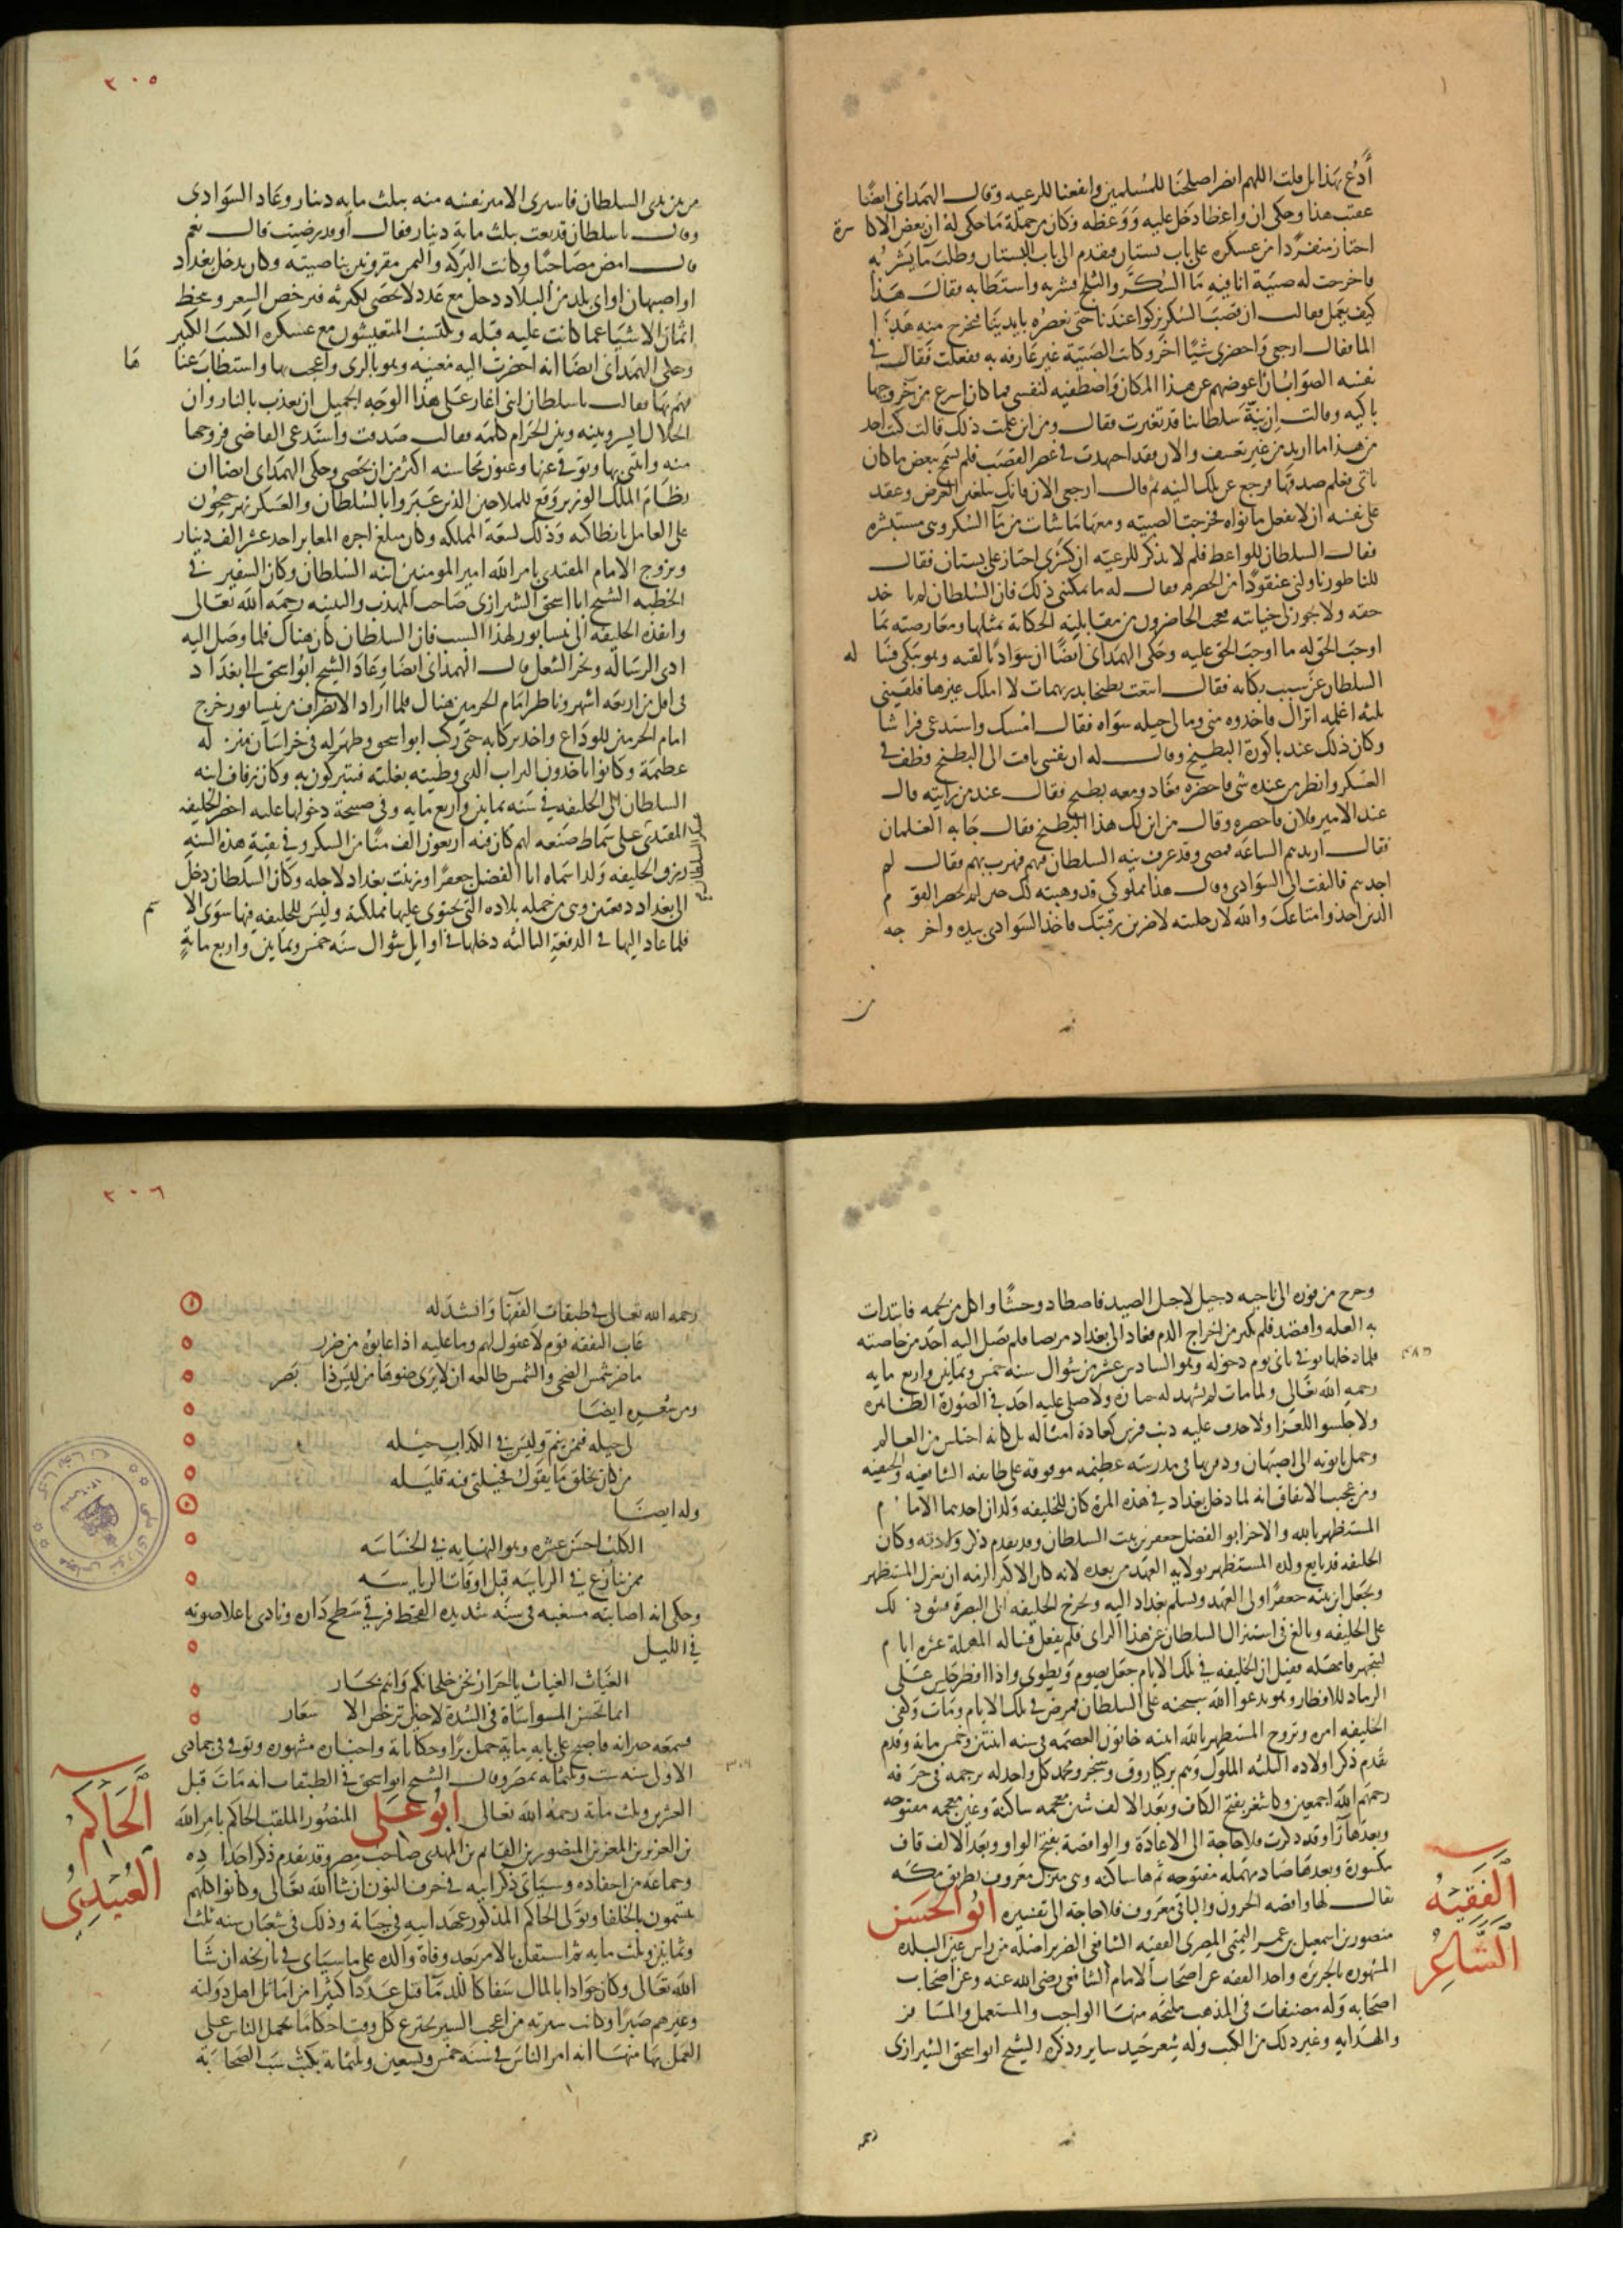 أدع بهذا بل قلت اللهم انصر اصلحنا للمسلمين وانفعنا للرعيه وقال الهمداني ايضا
عقيب هذا وحكى ان واعظا دخل عليه ووعظه وكان من جملة ما حكى له ان بعض الاكاسرة
اجتاز منفردا من عسكره على باب بستان فتقدم الى باب البستان وطلب ما يشربه
فاخرجت له صبية انا فيه ما السكر والثلج فشربه واستطابه فقال هذا
كيف يعمل فقالت ان قصب السكر يزكوا عندنا حتى نعصره بايدينا فيخرج منه هذا
الما فقال ارجعي واحضري شيا اخر وكانت الصبية غير عارفه به ففعلت فقال في
نفسه الصواب ان اعوضهم عن هذا المكان واصطفيه لنفسي فما كان اسرع من خروجها
باكيه وقالت ان نية سلطاننا قد تغيرت فقال ومن اين علمت ذلك قالت كنت اخد
من هذا ما اريد من غير تعسف والان فقد اجهدت في عصر القصب فلم يسمح ببعض ما كان
ياتي فعلم صدقها فرجع عن تلك النيه ثم قال ارجعي الان فانك تبلغين الغرض وعقد
على نفسه ان لا يفعل ما نواه فخرجت الصبيه ومعها ما شات من ما السكر وهي مستبشره
فقال السلطان للواعظ فلم لا تذكر للرعيه ان كسرى اجتاز على بستان فقال
للناطور ناولني عنقودا من الحصرم فقال له ما يمكنني ذلك فان السلطان لم ياخد
حقه ولا يجوز لي خيانته فعجب الحاضرون من مقابلته الحكاية بمثلها ومعارضته بما
اوجب الحق له ما اوجب الحق عليه وحكى الهمداني ايضا ان سواديا لقيه وهو يبكي فساله
السلطان عن سبب بكايه فقال ابتعت بطيخا بدريهمات لا املك غيرها فلقيني
ثلثه اغلمه اتراك فاخذوه مني وما لي حيله سواه فقال امسك واستدعى فراشا
وكان ذلك عند باكورة البطيخ وقال له ان نفسي تاقت الى البطيخ وطف في
العسكر وانظر من عنده شي فاحضره فعاد ومعه بطيخ فقال عند من رايته قال
عند الامير فلان فاحضره وقال من اين لك هذا البطيخ فقال جا به الغلمان
فقال اريدهم الساعه فمضى وقد عرف نيه السلطان فيهم فهرب بهم فقال لم
اجدهم فالتفت الى السوادي وقال هذا مملوكي قد وهبته لك حين لم يحضر القوم
الذين اخذوا متاعك والله لان خليته لاضربن رقبتك فاخذ السوادي بيده واخرجه
من
٣٠٥
من بين يدي السلطان فاشترى الامير نفسه منه بثلث مايه دينار وعاد السوادي
وقال يا سلطان قد بعت بثلث ماية دينار فقال او قد رضيت قال نعم
قال امض مصاحبا وكانت البركه واليمن مقرونين بناصيته وكان يدخل بغداد
او اصبهان او اي بلد من البلاد دخل مع عدد لا يحصى لكثرته فيرخص السعر وينحط
اثمان الاشيا عما كانت عليه قبله ويكتسب المتعيشون مع عسكره الكسب الكبير
وحكى الهمداني ايضا انه احضرت اليه مغنيه وهو بالري واعجب بها واستطاب غناها
فهم بها فقالت يا سلطان اني اغار على هذا الوجه الجميل ان يعذب بالنار وان
الحلال ايسر وبينه وبين الحرام كلمه فقال صدقت واستدعى القاضي فزوجها
منه وابتنى بها وتوفي عنها وعيون محاسنه اكثر من ان تحصى وحكى الهمداني ايضا ان
نظام الملك الوزير وقع للملاحين الذين عبروا بالسلطان والعسكر نهر جيحون
على العامل بانطاكيه وذلك لسعة المملكه وكان مبلغ اجره المعابر احد عشر الف دينار
وتزوج الامام المقتدي بامر الله امير المومنين ابنه السلطان وكان السفير في
الخطبه الشيخ ابا اسحق الشيرازي صاحب المهذب والتنبيه رحمه الله تعالى
وانفذه الخليفه الى نيسابور لهذا السبب فان السلطان كان هناك فلما وصل اليه
ادى الرساله ونجز الشغل قال الهمذاني ايضا وعاد الشيخ ابو اسحق الى بغداد
في اقل من اربعه اشهر وناظر امام الحرمين هناك فلما اراد الانصراف من نيسابور خرج
امام الحرمين للوداع واخذ بركابه حتى ركب ابو اسحق وظهر له في خراسان منزله
عظيمة وكانوا ياخذون التراب الذي وطيته بغلته فيتبركون به وكان زفاف ابنه
السلطان الى الخليفه في سنه ثمانين واربع مايه وفي صبيحة دخولها عليه احضر الخليفه
المقتدى على سماط صنعه لهم كان فيه اربعون الف منا من السكر وفي بقيه هذه السنه
رزق الخليفه ولدا سماه ابا الفضل جعفرا وزينت بغداد لاجله وكان السلطان دخل
الى بغداد دفعتين وهي من جمله بلاده التي يحتوى عليها مملكته وليس للخليفه فيها سوى الاسم
فلما عاد اليها في الدفعة الثالثه دخلها في اوايل شوال سنه خمس وثمانين واربع ماية
وخرج من فوره الى ناحيه دجيل لاجل الصيد فاصطاد وحشا واكل من لحمه فابتدات
به العله وافتصد فلم يكثر من اخراج الدم فعاد الى بغداد مريضا فلم يصل اليه احد من خاصته
فلما دخلها توفي ثاني يوم دخوله وهو السادس عشر من شوال سنه خمس وثمانين واربع مايه
٤٨٥
رحمه الله تعالى ولما مات لم يشهد له جنازه ولا صلى عليه احد في الصورة الظاهره
ولا جلسوا للعزا ولا حذف عليه ذنب فرس كعادة امثاله بل كانه اختلس من العالم
وحمل تابوته الى اصبهان ودفن بها في مدرسه عظيمه موقوفه على طايفه الشافعيه والحنفيه
ومن عجيب الاتفاق انه لما دخل بغداد في هذه المرة كان للخليفه ولدان احدهما الامام
المستظهر بالله والاخر ابو الفضل جعفر بن بنت السلطان وقد تقدم ذكر ولادته وكان
الخليفه قد بايع ولده المستظهر بولايه العهد من بعده لانه كان الاكبر الزمه ان يعزل المستظهر
ويجعل ابن بنته جعفرا ولي العهد ويسلم بغداد اليه ويخرج الخليفه الى البصرة فشق ذلك
على الخليفه وبالغ في استنزال السلطان عن هذا الراي فلم يفعل فساله المهلة عشره ايام
ليتجهز فامهله فقيل ان الخليفه في تلك الايام جعل يصوم ويطوى واذا افطر جلس على
الرماد للافطار وهو يدعوا الله سبحنه على السلطان فمرض في تلك الايام ومات وكفي
الخليفه امره وتزوج المستظهر بالله ابنه خاتون العصمه في سنه اثنتين وخمس مايه وقدم
تقدم ذكر اولاده الثلثه الملوك وهم بركياروق وسنجر ومحمد كل واحد له ترجمه في حرفه
رحمهم الله اجمعين وكاشغر بفتح الكاف وبعد الالف شين معجمه ساكنة وغين معجمه مفتوحه
وبعدها را وقد ذكرت فلا حاجة الى الاعادة والواقصة بفتح الواو وبعد الالف قاف
مكسورة وبعدها صاد مهمله مفتوحه ثم ها ساكنه وهي منزل معروف بطريق مكه
يقال لها واقصه الحرون والباقي معروف فلا حاجة الى تفسيره ابو الحسن
الفقيه
الشاعر
منصور بن اسمعيل بن عمر التيمي المصري الفقيه الشافعي الضرير اصله من راس عين البلده
المشهوره بالجزيره واخذ الفقه عن اصحاب الامام الشافعي رضي الله عنه وعن اصحاب
اصحابه وله مصنفات في المذهب مليحه منها الواجب والمستعمل والمسافر
والهدايه وغير ذلك من الكتب وله شعر جيد ساير وذكره الشيخ ابو اسحق الشيرازي
رحمه
٣٠٦
رحمه الله تعالى في طبقات الفقها وانشد له
عاب التفقه قوم لا عقول لهم وما عليه اذا عابوه من ضرر
ما ضر شمس الضحى والشمس طالعه ان لا يرى ضوها من ليس ذا بصر
ومن شعره ايضا
لي حيله فيمن ينم وليس في الكذاب حيله
من كان يخلق ما يقول فحيلتي فيه قليله
وله ايضا
الكلب احسن عشره وهو النهايه في الخساسه
ممن ينازع في الرياسه قبل اوقات الرياسه
وحكى انه اصابته مسغبه في سنه شديده القحط فرقي سطح داره ونادى باعلا صوته
في الليل
الغياث الغياث يا احرار نحن خلجانكم وانتم بحار
انما تحسن المواساة في الشدة لا حين ترخص الاسعار
فسمعه جيرانه فاصبح على بابه ماية حمل برا وحكاياته واخباره مشهوره وتوفي في جمادى
الاولى سنه ست وثلثمائه بمصر وقال الشيخ ابو اسحق في الطبقات انه مات قبل
٣٠٦
العشرين وثلث ماية رحمه الله تعالى ابو على المنصور الملقب الحاكم بامر الله
الحاكم
العبيدي
بن العزيز بن المعز بن المنصور بن القايم بن المهدي صاحب مصر وقد تقدم ذكر اجداده
وجماعه من احفاده وسياتي ذكر ابيه في حرف النون ان شا الله تعالى وكانوا كلهم
يتسمون بالخلفا وتولى الحاكم المذكور عهد ابيه في حياته وذلك في شعبان سنه ثلث
وثمانين وثلث مايه ثم استقل بالامر بعد وفاة والده على ما سياتي في تاريخه ان شا
الله تعالى وكان جوادا بالمال سفاكا للدما قتل عددا كثيرا من اماثل اهل دولته
وغيرهم صبرا وكانت سيرته من اعجب السير يخترع كل وقت احكاما يحمل الناس على
العمل بها منها انه امر الناس في سنه خمس وتسعين وثلثمائة بكتب سب الصحابة